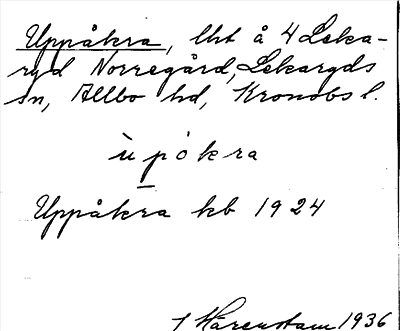 Uppåkra, lht å 4 Leka-
ryd Norregård, Lekaryds
sn, Allbo hd, Kronobs l.
ùpókra
Uppåkra kb 1924
Härenstam 1936